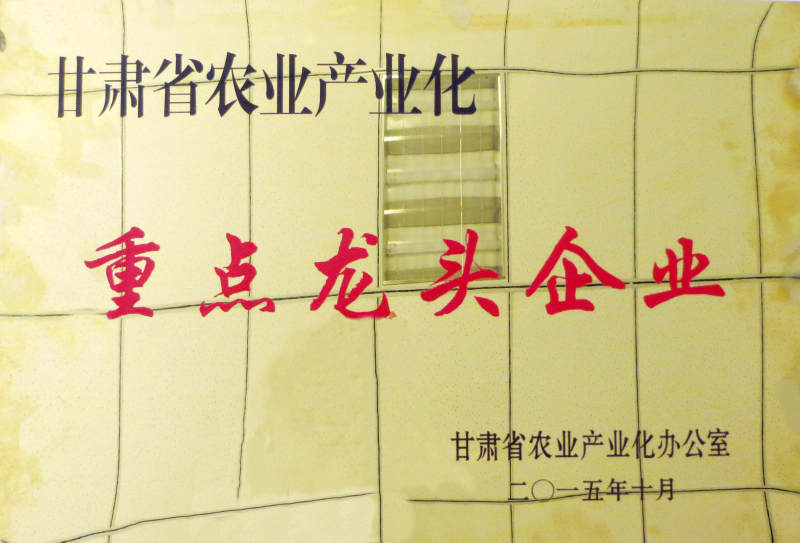 甘肃省农业产业化
重点龙头企业
甘肃省农业产业化办公室
二〇一五年十月